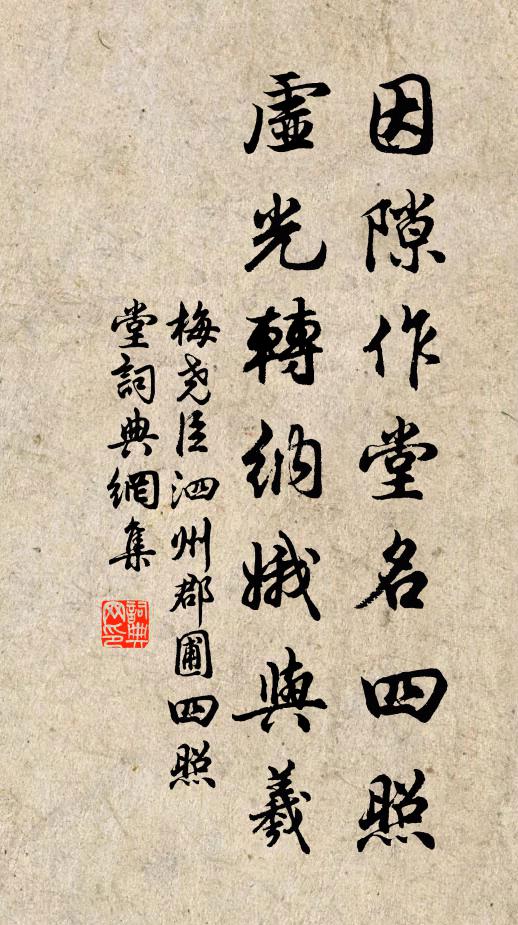 因隙作堂名四照
虛光轉納娥與羲
梅尧臣泗州郡圃四照
堂詞典網集
詞典
网印